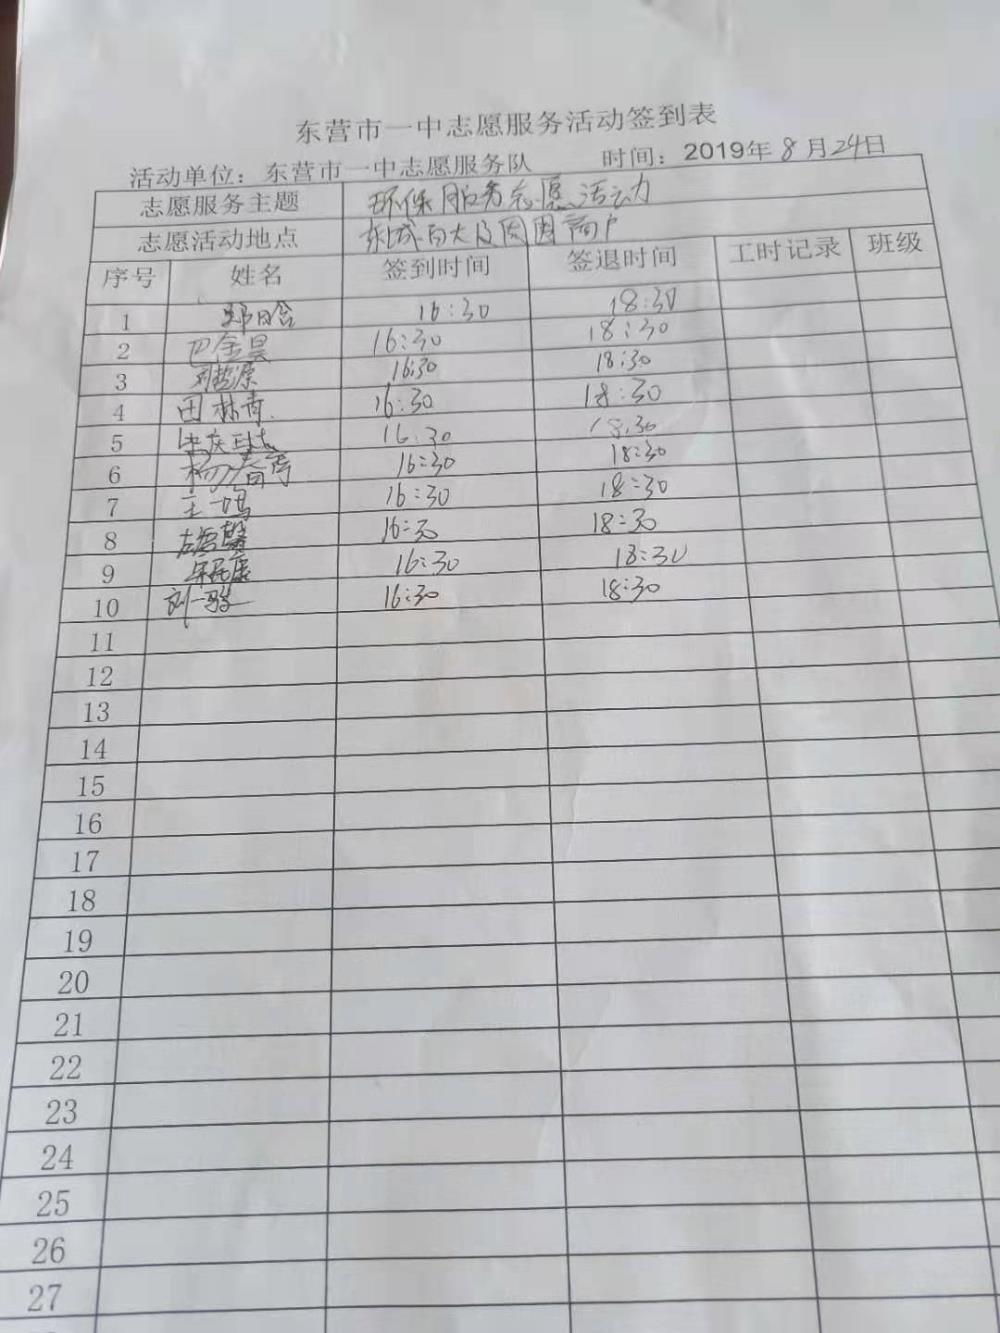 东营市一中志愿服务活动签到表
活动单位：东营市一中志愿服务队 时间：2019年8月24日
志愿服务主题 环保服务志愿活动
志愿活动地点 东城百大及周围商户
序号 姓名 签到时间 签退时间 工时记录 班级
1 16:30 18:30
2 巴金昊 16:30 18:30
3 16:30 18:30
4 田林青 16:30 18:30
5 16:30 18:30
6 杨春雪 16:30 18:30
7 王一鸣 16:30 18:30
8 16:30 18:30
9 16:30 18:30
10 刘一 16:30 18:30
11
12
13
14
15
16
17
18
19
20
21
22
23
24
25
26
27